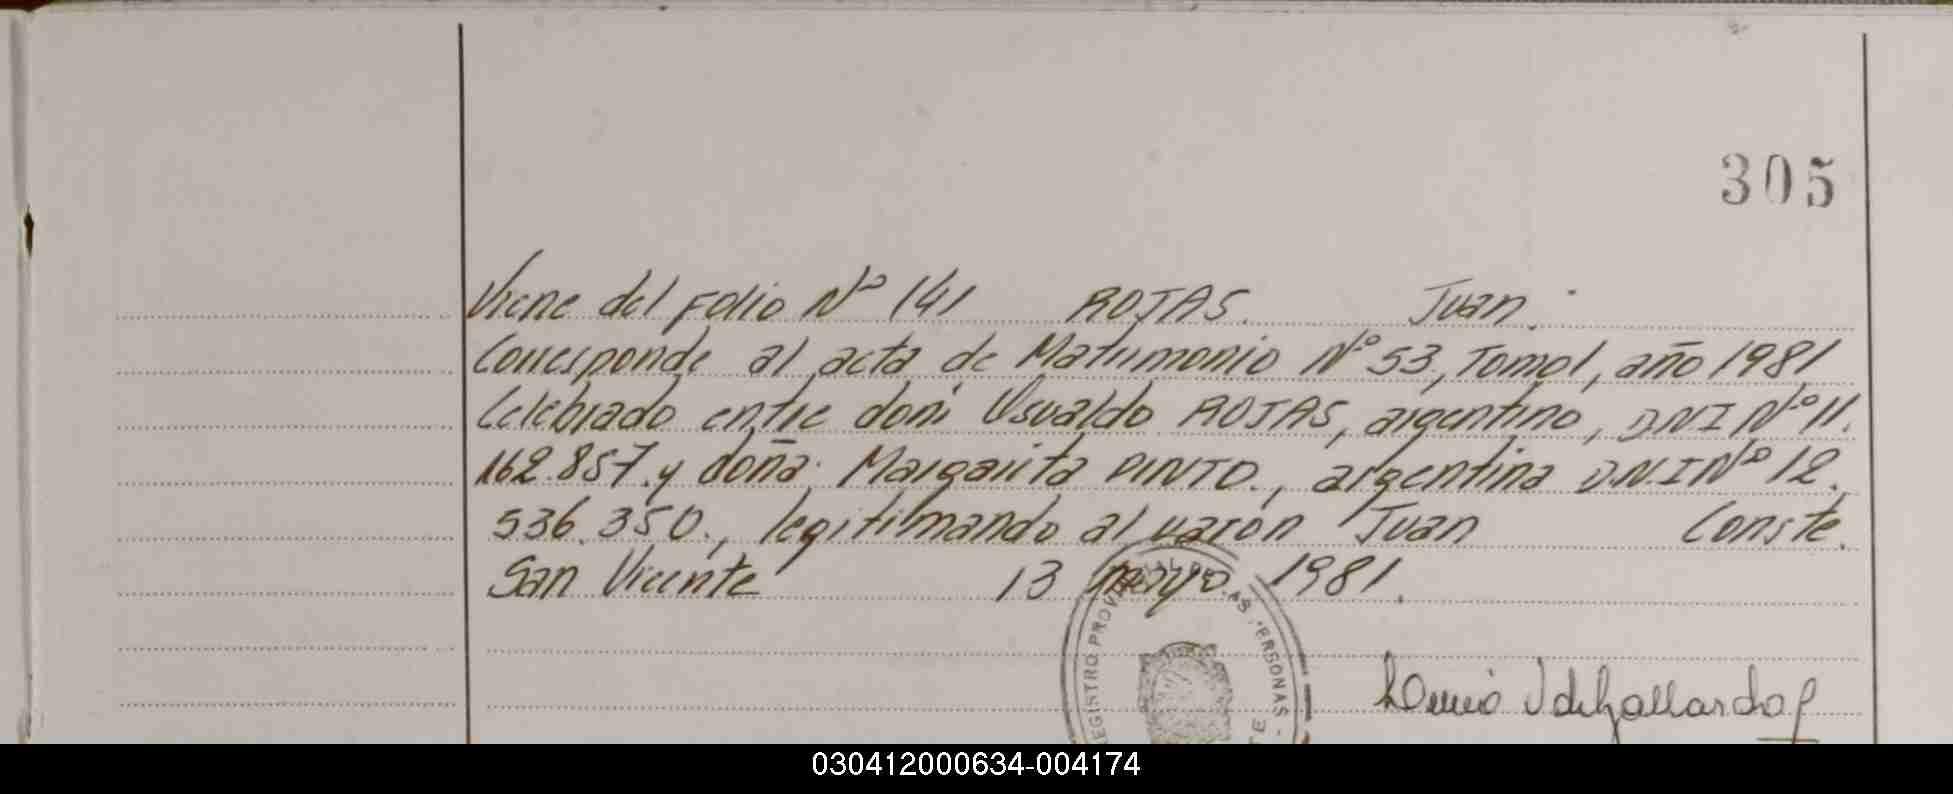 305
Viene del Folio Nº 141 ROJAS. Juan.
Corresponde al acta de Matrimonio Nº 53, Tomo 1, año 1981
Celebrado entre don: Osvaldo ROJAS, argentino, D.N.I Nº 11.
162.857. y doña: Margarita PINTO., argentina D.N.I Nº 12.
536.350., legitimando al varón Juan Conste.
San Vicente 13 mayo. 1981.
REGISTRO PERSONAS
030412000634-004174